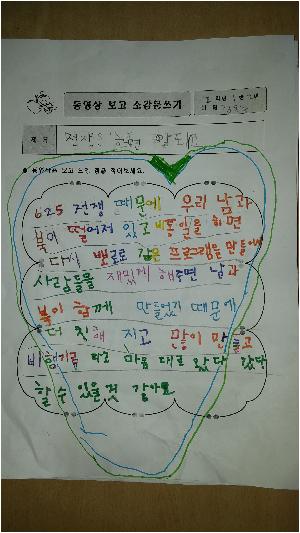 동영상 보고 소감문쓰기
제 목
전쟁을
● 동영상을 보고 느낀 점을 적어보세요.
625 전쟁 때문에 우리 남과
북이 떨어져 있고 통일을 하면
다시 뽀로로 같은 프로그램을 만들어
사람들을 재밌게 해주면 남과
북이 함께 만들었기 때문에
더 친해 지고 많이 만들고
비행기를 타고 마음 대로 왔다 갔다
할 수 있을 것 같아요